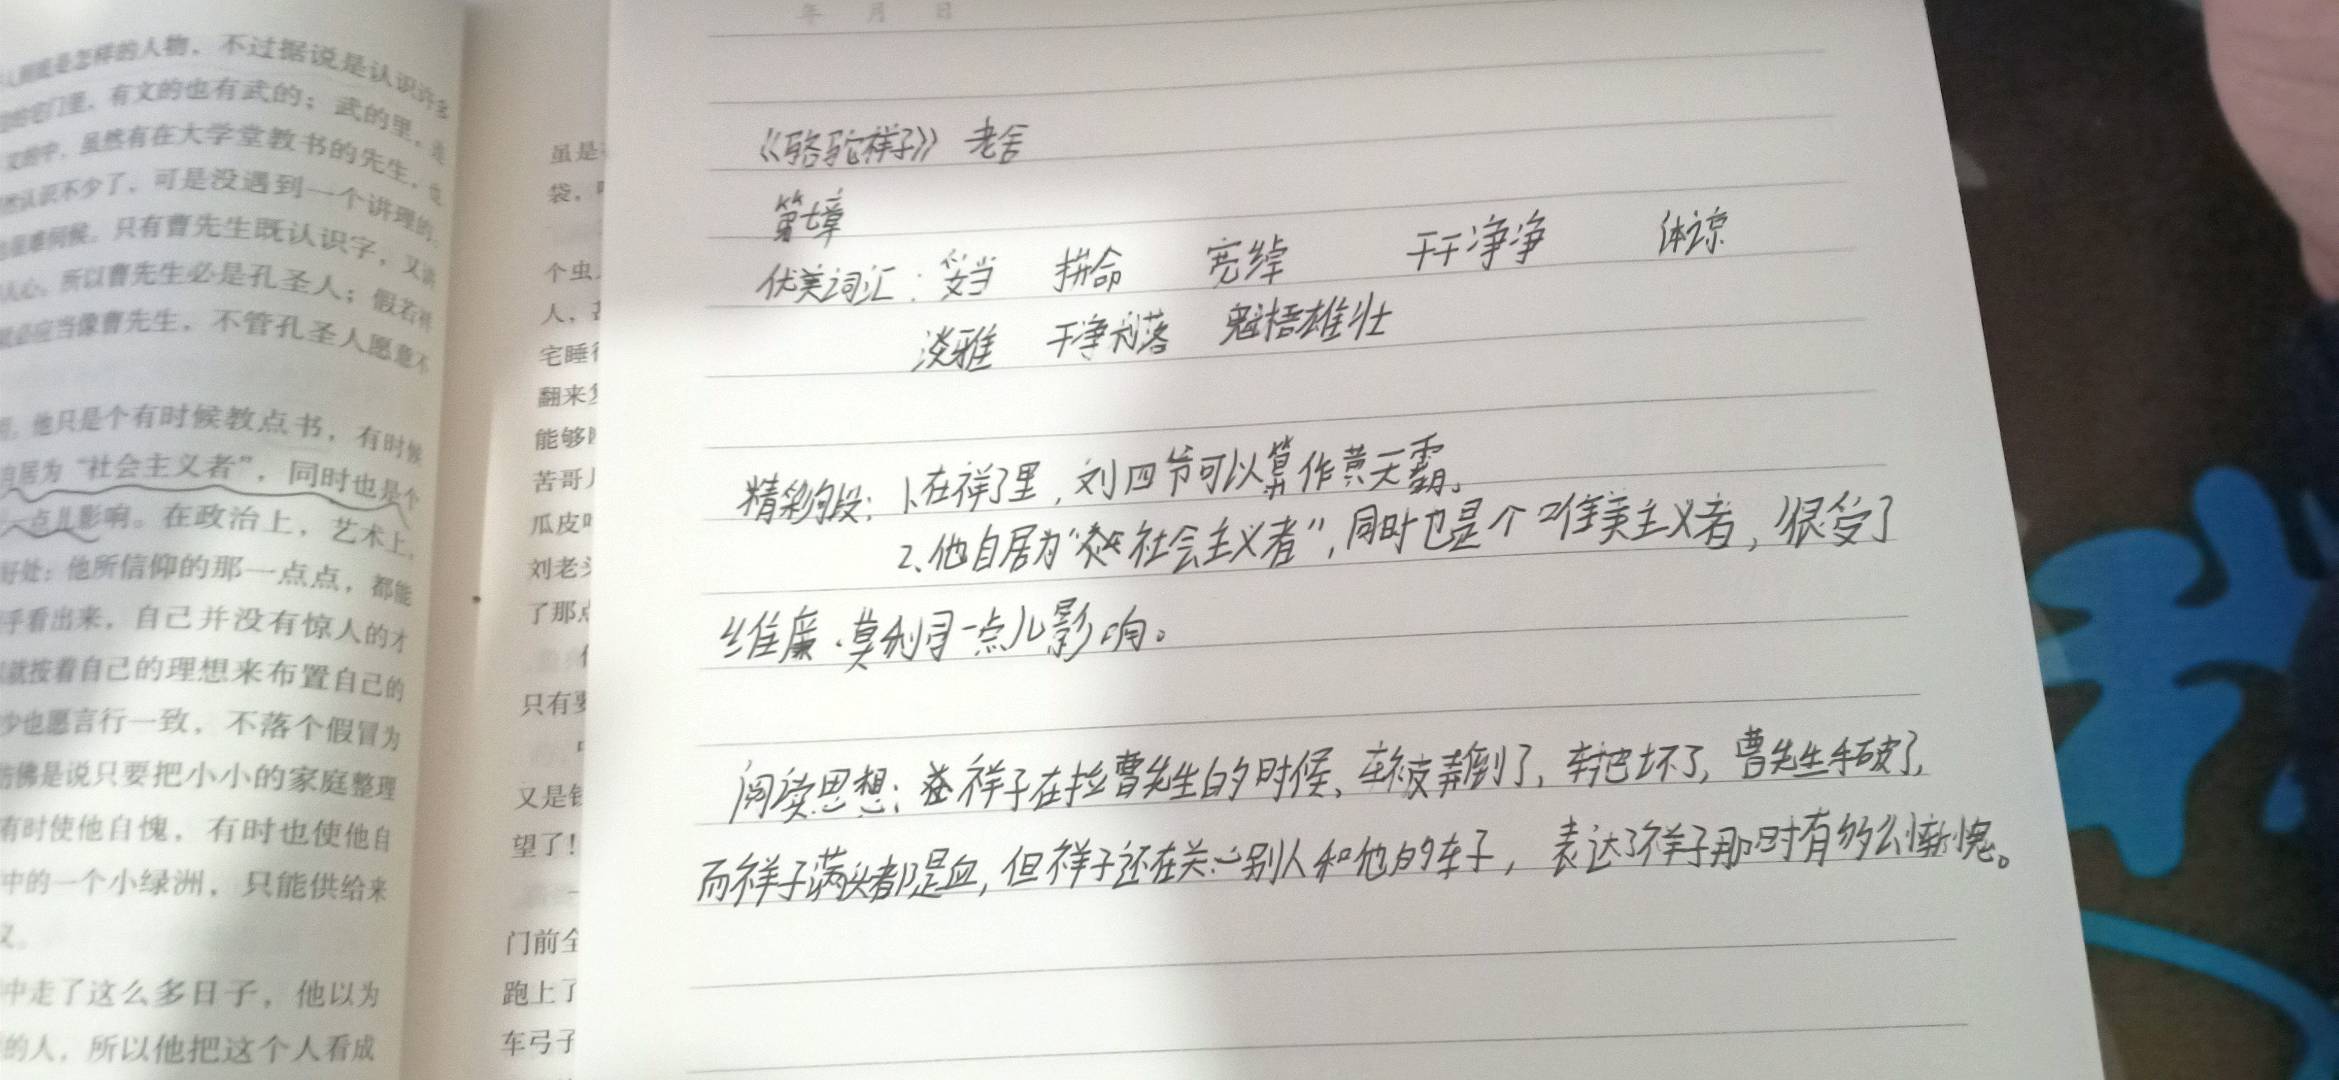 年 月 日
人物到底是怎样的人物，不过据说是认识许多
的宅门里，有文的也有武的；武的里，连
文的中，虽然有在大学堂教书的先生，也
然认识不少了，可是没遇到一个讲理的。
也很难伺候。只有曹先生既认识字，又讲
人心。所以曹先生必是孔圣人；假若祥
就必应当像曹先生，不管孔圣人愿意不
他只是个有时候教点书，有时候
自居为“社会主义者”，同时也是个
一点儿影响。在政治上，艺术上，
好处：他所信仰的那一点点，都能
乎看出来，自己并没有惊人的才
就按着自己的理想来布置自己的
少也愿言行一致，不落个假冒为
仿佛是说只要把小小的家庭整理
有时使他自愧，有时也使他自
中的一个小绿洲，只能供给来
义。
中走了这么多日子，他以为
的人，所以他把这个人看成
虽是
袋，
个虫
人，
宅睡
翻来
能够
苦哥
瓜皮
刘老
了那
只有要
又是钱
望了！
门前全
跑上了
车弓子
《骆驼祥子》 老舍
第七章
优美词汇：妥当 拼命 宽绰 干干净净 体谅
淡雅 干净利落 魁梧雄壮
精彩句段：1、在祥子里，刘四爷可以算作黄天霸。
2、他自居为“社会主义者”，同时也是个唯美主义者，很受了
维廉·莫利司一点儿影响。
阅读思想：祥子在拉曹先生的时候、车被弄倒了，车把坏了，曹先生手破了，
而祥子满头都是血，但祥子还在关心别人和他的车子，表达了祥子那时有多么惭愧。